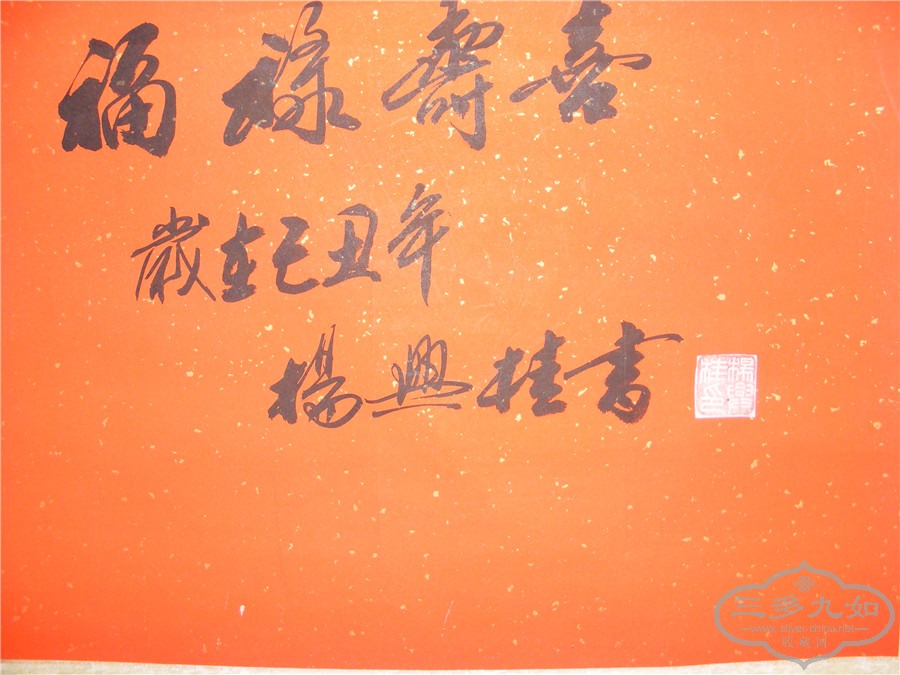 福祿壽喜
歲在己丑年
楊興桂書
楊興桂印
三多九如
www.silver-china.net
收藏網